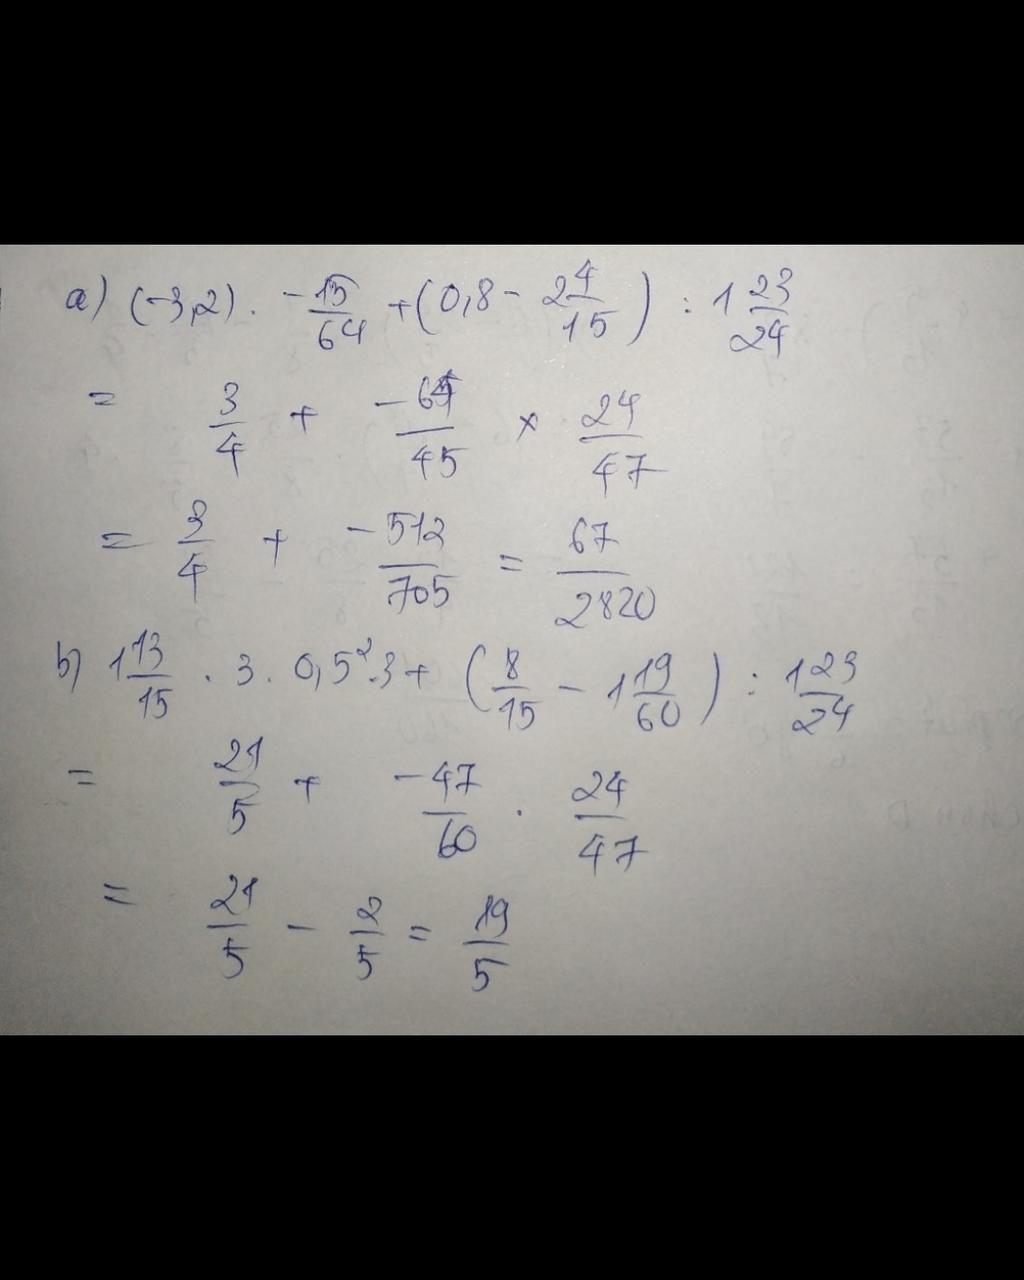 a) (-3,2) . -15/64 + (0,8 - 2 4/15) : 1 23/24
= 3/4 + -64/45 × 24/47
= 3/4 + -512/705 = 67/2820
b) 1 13/15 . 3 . 0,5² . 3 + (8/15 - 1 19/60) : 1 23/24
= 21/5 + -47/60 . 24/47
= 21/5 - 2/5 = 19/5